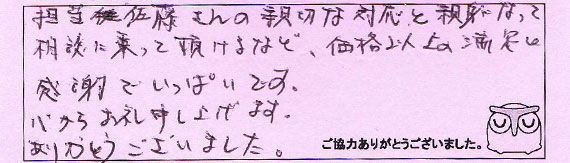 担当佐藤さんの親切な対応と親身になって
相談に乗って頂けるなど、価格以上の満足と
感謝でいっぱいです。
心からお礼申し上げます。
ありがとうございました。
ご協力ありがとうございました。